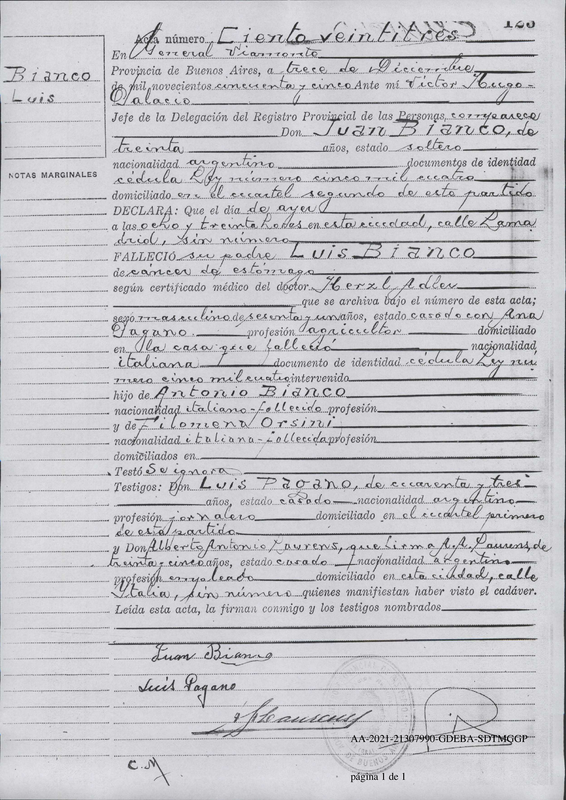 123
Acta número Ciento veintitres
En General Viamonte
Provincia de Buenos Aires, a trece de Diciembre
de mil novecientos cincuenta y cinco Ante mí Victor Hugo
Palacio
Jefe de la Delegación del Registro Provincial de las Personas, comparece
Don Juan Bianco, de
treinta años, estado soltero
nacionalidad argentino documentos de identidad
cédula Ley número cinco mil cuatro
domiciliado en el cuartel segundo de este partido
DECLARA: Que el día de ayer
a las ocho y treinta horas en esta ciudad, calle Lama
drid, sin número
FALLECIÓ su padre Luis Bianco
de cáncer de estómago
según certificado médico del doctor Herzl Adler
que se archiva bajo el número de esta acta;
sexo masculino de sesenta y un años, estado casado con Ana
Pagano profesión agricultor domiciliado
en la casa que falleció nacionalidad
italiana documento de identidad cédula Ley nú
mero cinco mil cuatro intervenido
hijo de Antonio Bianco
nacionalidad italiano-fallecido profesión
y de Filomena Orsini
nacionalidad italiana-fallecida profesión
domiciliados en
Testó Se ignora
Testigos: Don Luis Pagano, de cuarenta y tres
años, estado casado nacionalidad argentino
profesión jornalero domiciliado en el cuartel primero
de este partido
y Don Alberto Antonio Laurens, que firma A.A. Laurens, de
treinta y cinco años, estado casado nacionalidad argentino
profesión empleado domiciliado en esta ciudad, calle
Italia, sin número quienes manifiestan haber visto el cadáver.
Leída esta acta, la firman conmigo y los testigos nombrados
Bianco
Luis
NOTAS MARGINALES
Juan Bianco
Luis Pagano
C.M
AA-2021-21307990-GDEBA-SDTMGGP
página 1 de 1